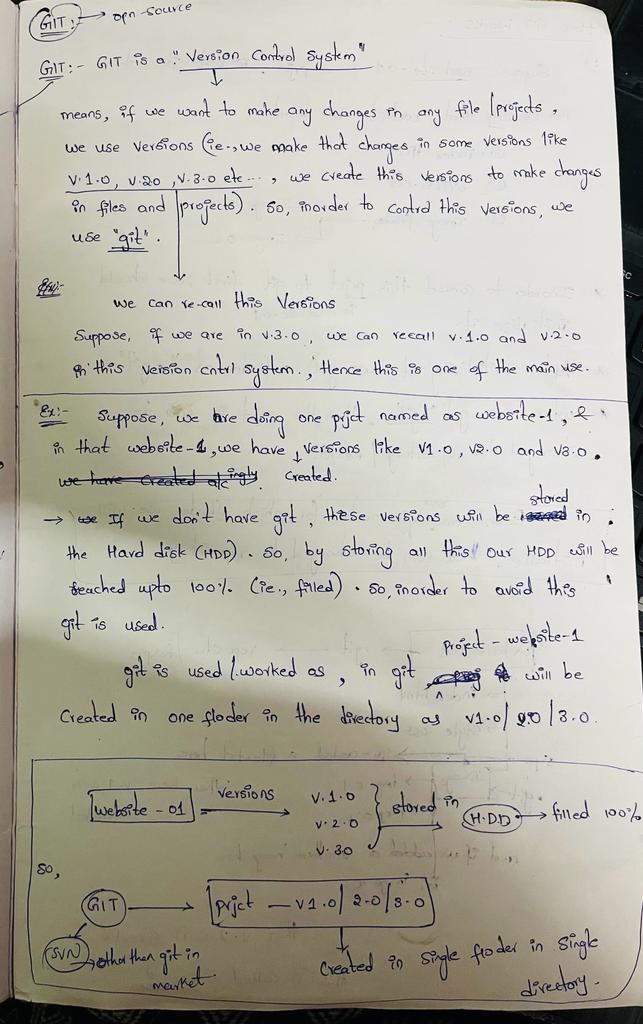 GIT :- → opn-source
GIT:- GIT is a :" Version Control System"
means, if we want to make any changes in any file / projects ,
we use versions (ie., we make that changes in some versions like
V.1.0, V.2.0 , V.3.0 etc...., we create this versions to make changes
in files and projects). So, inorder to control this versions, we
use "git".
we can re-call this Versions
Suppose, if we are in v.3.0 , we can recall v.1.0 and v.2.0
in this veision cntrl system., Hence this is one of the main use.
Ex:- Suppose, we are doing one prjct named as website-1, &
in that website-1, we have versions like V1.0, V2.0 and V3.0.
we have created a/c ingly created.
→ we If we don't have git, these versions will be stored in
the Hard disk (HDD). So, by storing all this our HDD will be
reached upto 100% (ie., filled). So, inorder to avoid this
git is used.
git is used /.worked as , in git project - website-1 will be
Created in one floder in the directory as v1.0/ 2.0 /3.0.
website - 01 versions → v.1.0 v.2.0 v.30 } stored in → H.DD → filled 100%
So,
GIT → prjct — v1.0/ 2.0/3.0
SVN → other than git in market
Created in single floder in single
directory.